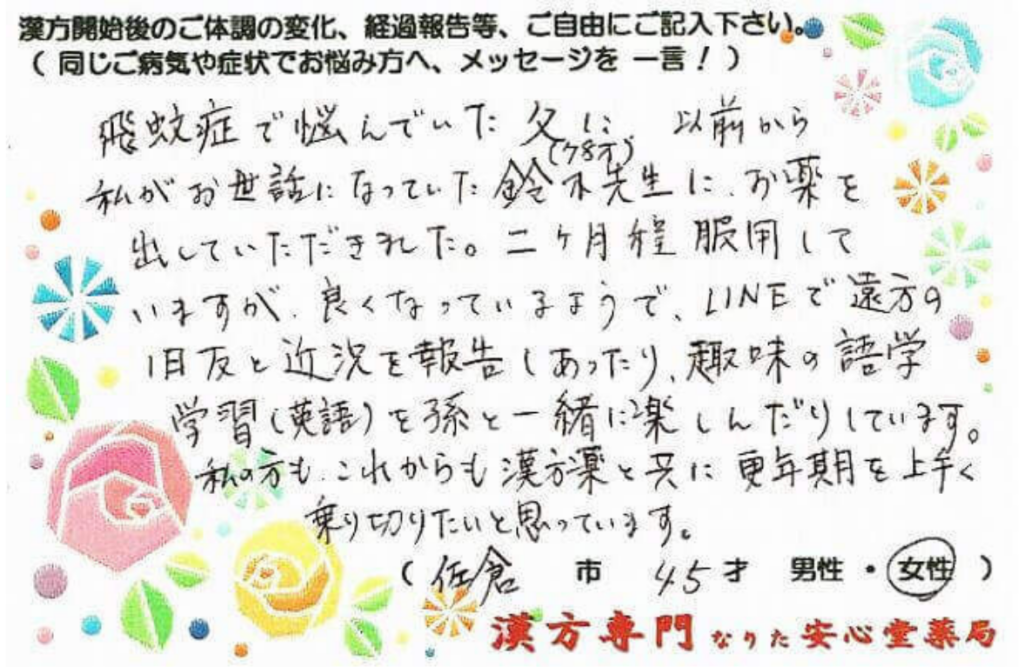 漢方開始後のご体調の変化、経過報告等、ご自由にご記入下さい。
（同じご病気や症状でお悩み方へ、メッセージを 一言！）
飛蚊症で悩んでいた父に、以前から
(78才)
私がお世話になっていた鈴木先生に、お薬を
出していただきました。二ケ月程服用して
いますが、良くなっているようで、LINEで遠方の
旧友と近況を報告しあったり、趣味の語学
学習（英語）を孫と一緒に楽しんだりしています。
私の方も、これからも漢方薬と共に更年期を上手く
乗り切りたいと思っています。
（佐倉 市 45才 男性・女性）
漢方専門 なりた安心堂薬局